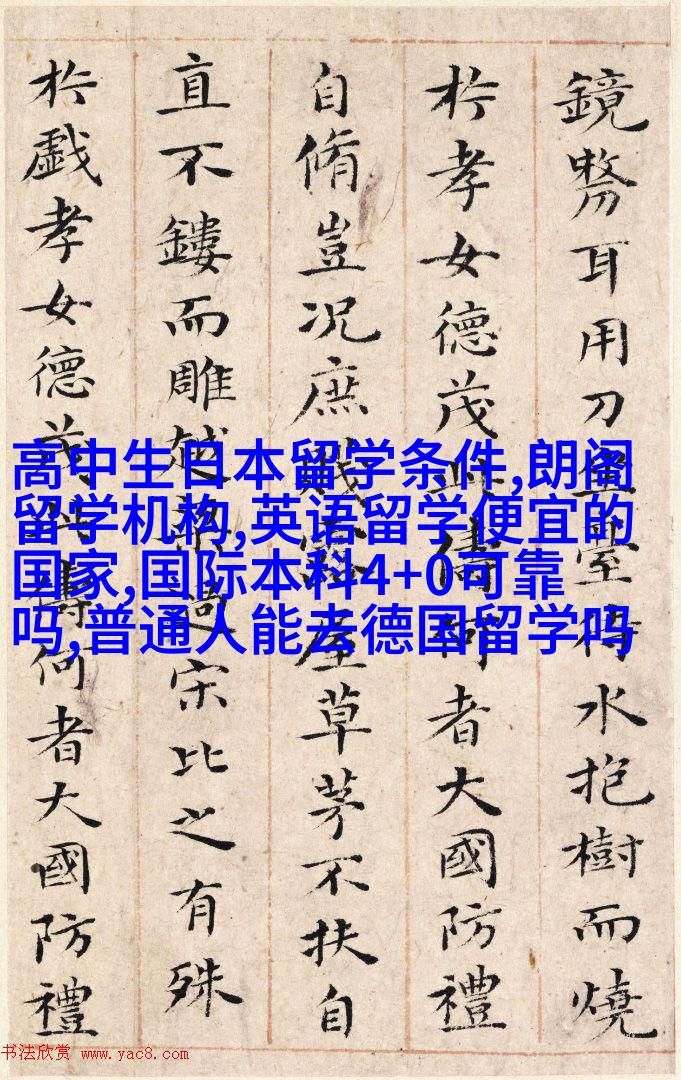 鏡剺耳用刀坐臺待水抱樹而燒
扵孝女德茂此儔何者大國防禮
自脩豈況庶賤露屋草茅不扶自
直不鏤而雕越梁過宋比之有殊
扵戲孝女德茂此儔何者大國防禮
高中生日本留学条件,朗阁
留学机构,英语留学便宜的
国家,国际本科4+0可靠
吗,普通人能去德国留学吗
书法欣赏 www.yac8.com